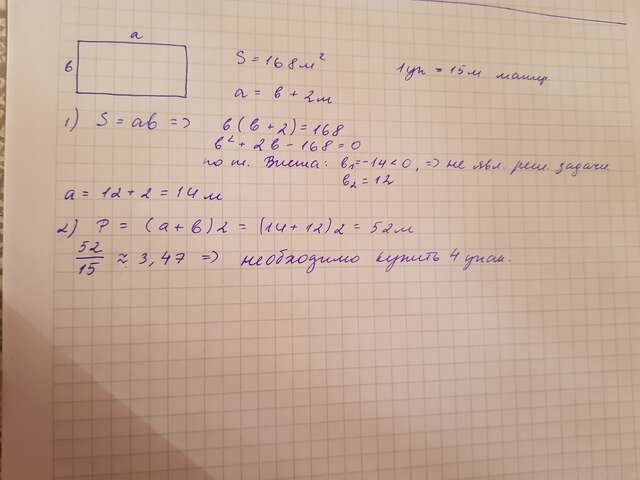 a
b
S = 168 м²
a = b + 2м
1 уп = 15 м
1) S = ab => b(b+2) = 168
b² + 2b - 168 = 0
по т. Виета: b₁ = -14 < 0, => не явл. реш. задачи
b₂ = 12
a = 12 + 2 = 14 м
2) P = (a + b) 2 = (14 + 12) 2 = 52 м
52/15 ≈ 3,47 => необходимо купить 4 упак.